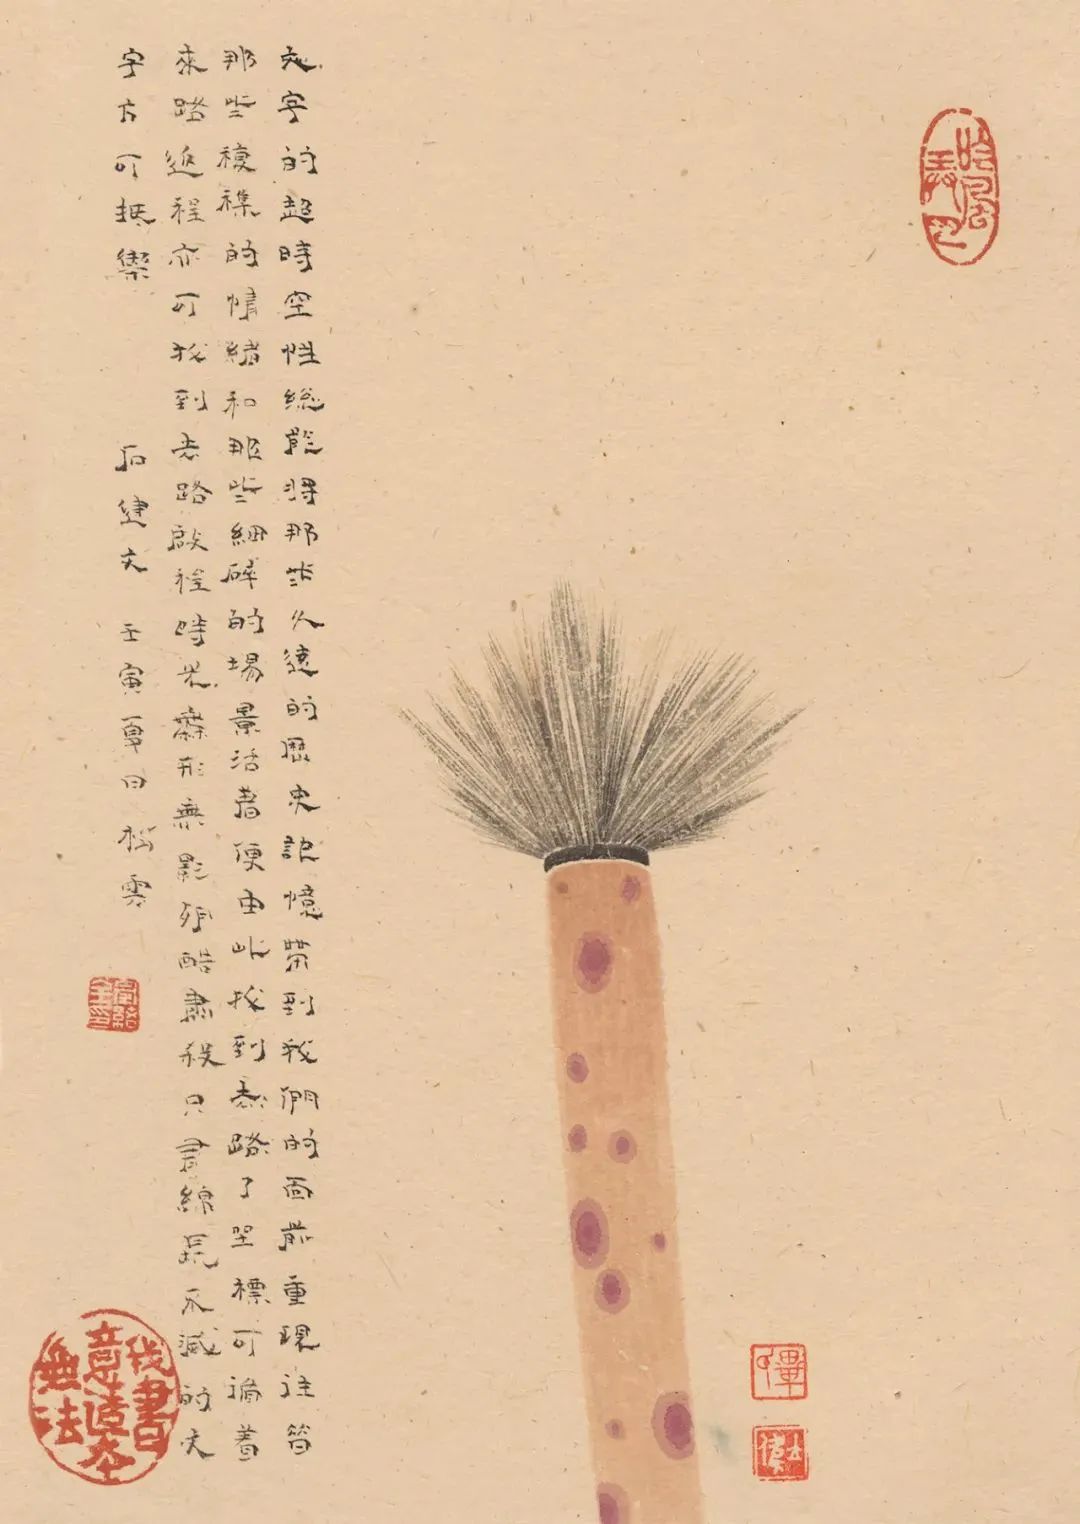 文字的超時空性總能將那些久遠的歷史記憶帶到我們的面前重現往昔
那些複襍的情緒和那些細碎的場景活着便由此找到來路了坐標可循着
來路返程亦可找到去路啟程時光無形無影殘酷肅殺只有綿長不滅的文
字方可抵禦
石建文 壬寅夏日松雲
我書意造本無法